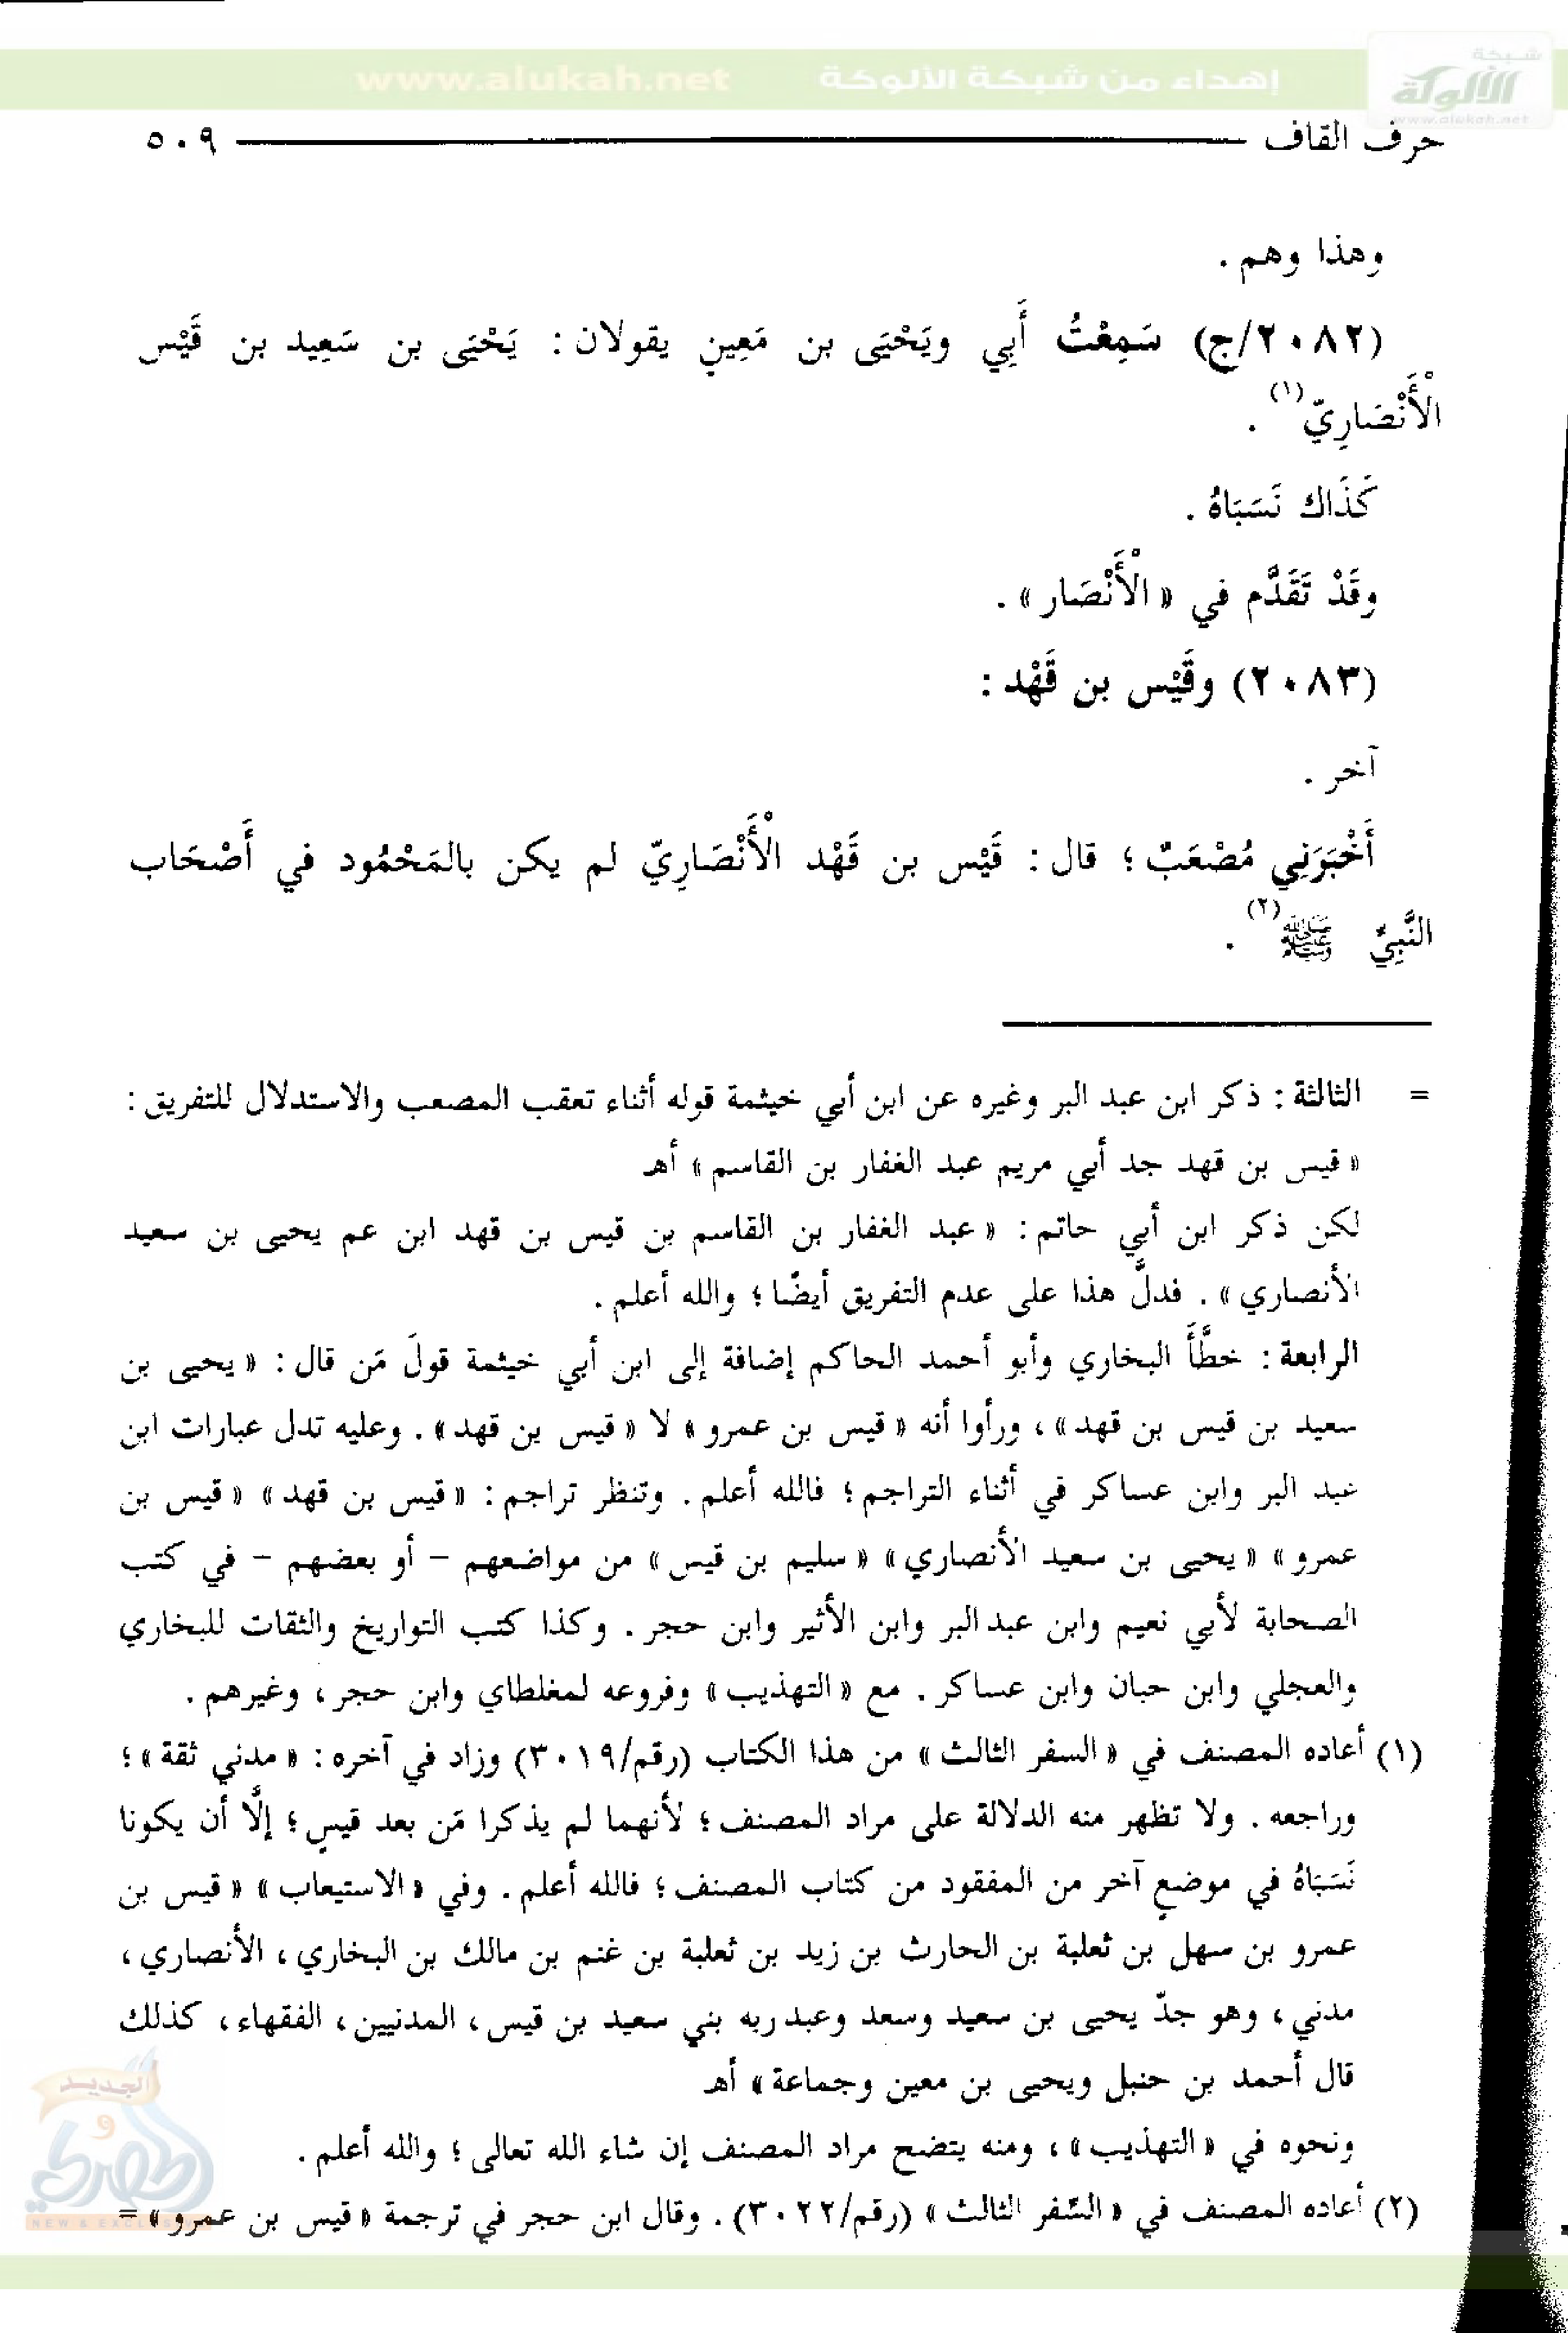 شبكة
الألوكة
www.alukah.net
إهداء من شبكة الألوكة www.alukah.net
حرف القاف ٥٠٩
وهذا وهم .
(٢٠٨٢/ج) سَمِعْتُ أَبِي ويَحْيَى بن مَعِينٍ يقولان : يَحْيَى بن سَعِيد بن قَيْس
الْأَنْصَارِيّ(١) .
كَذَاك نَسَبَاهُ .
وقَدْ تَقَدَّم في « الْأَنْصَار » .
(٢٠٨٣) وقَيْس بن قَهْد :
آخر .
أَخْبَرَنِي مُصْعَبٌ ؛ قال : قَيْس بن قَهْد الْأَنْصَارِيّ لم يكن بالمَحْمُود في أَصْحَاب
النَّبِيِّ ﷺ(٢) .
= الثالثة : ذكر ابن عبد البر وغيره عن ابن أبي خيثمة قوله أثناء تعقب المصعب والاستدلال للتفريق :
« قيس بن قهد جد أبي مريم عبد الغفار بن القاسم » أهـ
لكن ذكر ابن أبي حاتم : « عبد الغفار بن القاسم بن قيس بن قهد ابن عم يحيى بن سعيد
الأنصاري » . فدلَّ هذا على عدم التفريق أيضًا ؛ والله أعلم .
الرابعة : خطَّأَ البخاري وأبو أحمد الحاكم إضافة إلى ابن أبي خيثمة قولَ مَن قال : « يحيى بن
سعيد بن قيس بن قهد » ، ورأوا أنه « قيس بن عمرو » لا « قيس بن قهد » . وعليه تدل عبارات ابن
عبد البر وابن عساكر في أثناء التراجم ؛ فالله أعلم . وتنظر تراجم : « قيس بن قهد » « قيس بن
عمرو » « يحيى بن سعيد الأنصاري » « سليم بن قيس » من مواضعهم – أو بعضهم – في كتب
الصحابة لأبي نعيم وابن عبد البر وابن الأثير وابن حجر . وكذا كتب التواريخ والثقات للبخاري
والعجلي وابن حبان وابن عساكر . مع « التهذيب » وفروعه لمغلطاي وابن حجر ، وغيرهم .
(١) أعاده المصنف في « السفر الثالث » من هذا الكتاب (رقم/٣٠١٩) وزاد في آخره : « مدني ثقة » ؛
وراجعه . ولا تظهر منه الدلالة على مراد المصنف ؛ لأنهما لم يذكرا مَن بعد قيسٍ ؛ إلَّا أن يكونا
نَسَبَاهُ في موضعٍ آخر من المفقود من كتاب المصنف ؛ فالله أعلم . وفي « الاستيعاب » « قيس بن
عمرو بن سهل بن ثعلبة بن الحارث بن زيد بن ثعلبة بن غنم بن مالك بن البخاري ، الأنصاري ،
مدني ، وهو جدّ يحيى بن سعيد وسعد وعبد ربه بني سعيد بن قيس ، المدنيين ، الفقهاء ، كذلك
قال أحمد بن حنبل ويحيى بن معين وجماعة » أهـ
ونحوه في « التهذيب » ، ومنه يتضح مراد المصنف إن شاء الله تعالى ؛ والله أعلم .
(٢) أعاده المصنف في « السِّفر الثالث » (رقم/٣٠٢٢) . وقال ابن حجر في ترجمة « قيس بن عمرو » =
الجديد
و
NEW & EXCLUSIVE